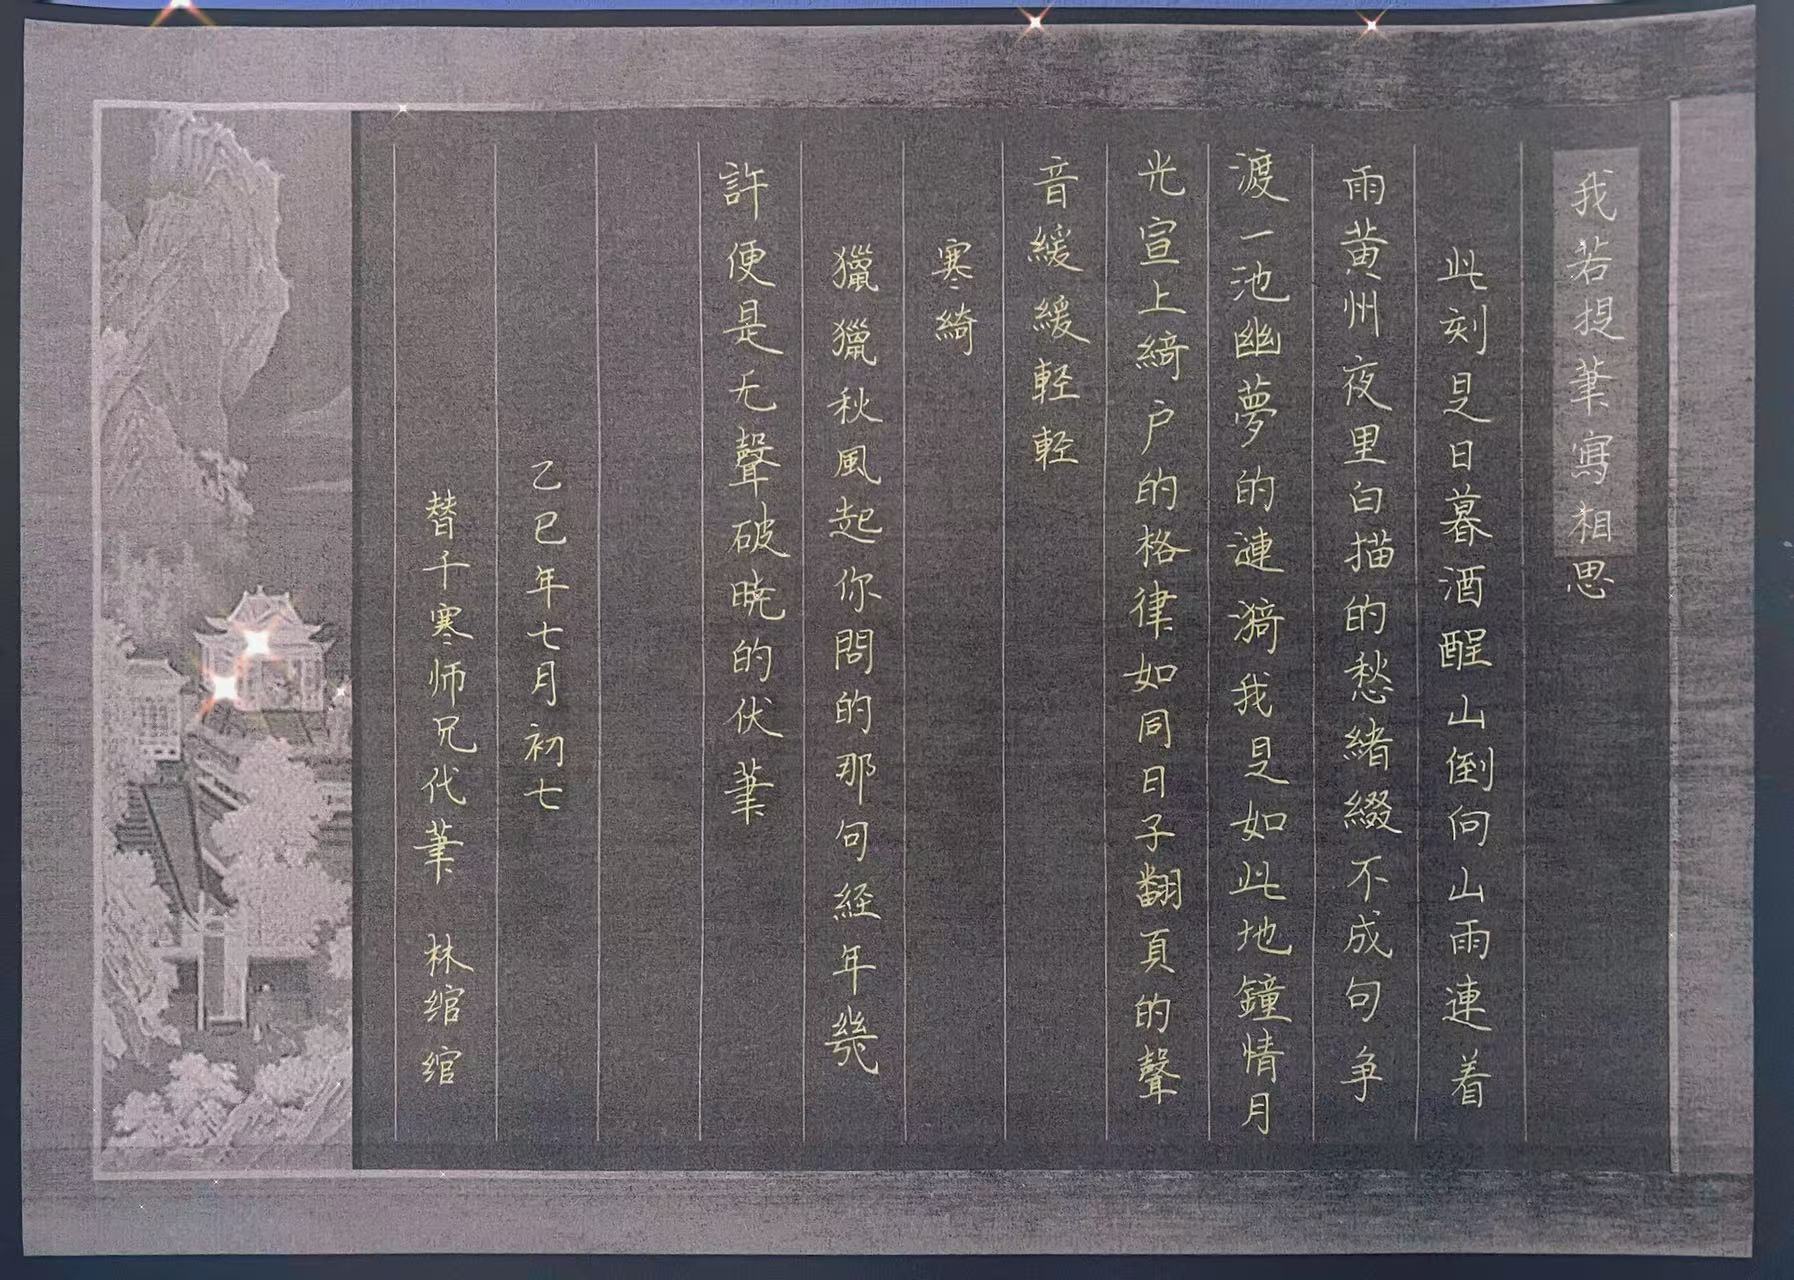 我若提筆寫相思
此刻是日暮酒醒山倒向山雨連着
雨黄州夜里白描的愁緒綴不成句争
渡一池幽夢的漣漪我是如此地鐘情月
光宣上綺户的格律如同日子翻頁的聲
音緩緩輕輕
寒綺
獵獵秋風起你問的那句経年幾
許便是无聲破曉的伏筆
乙巳年七月初七
替千寒师兄代筆 林绾绾